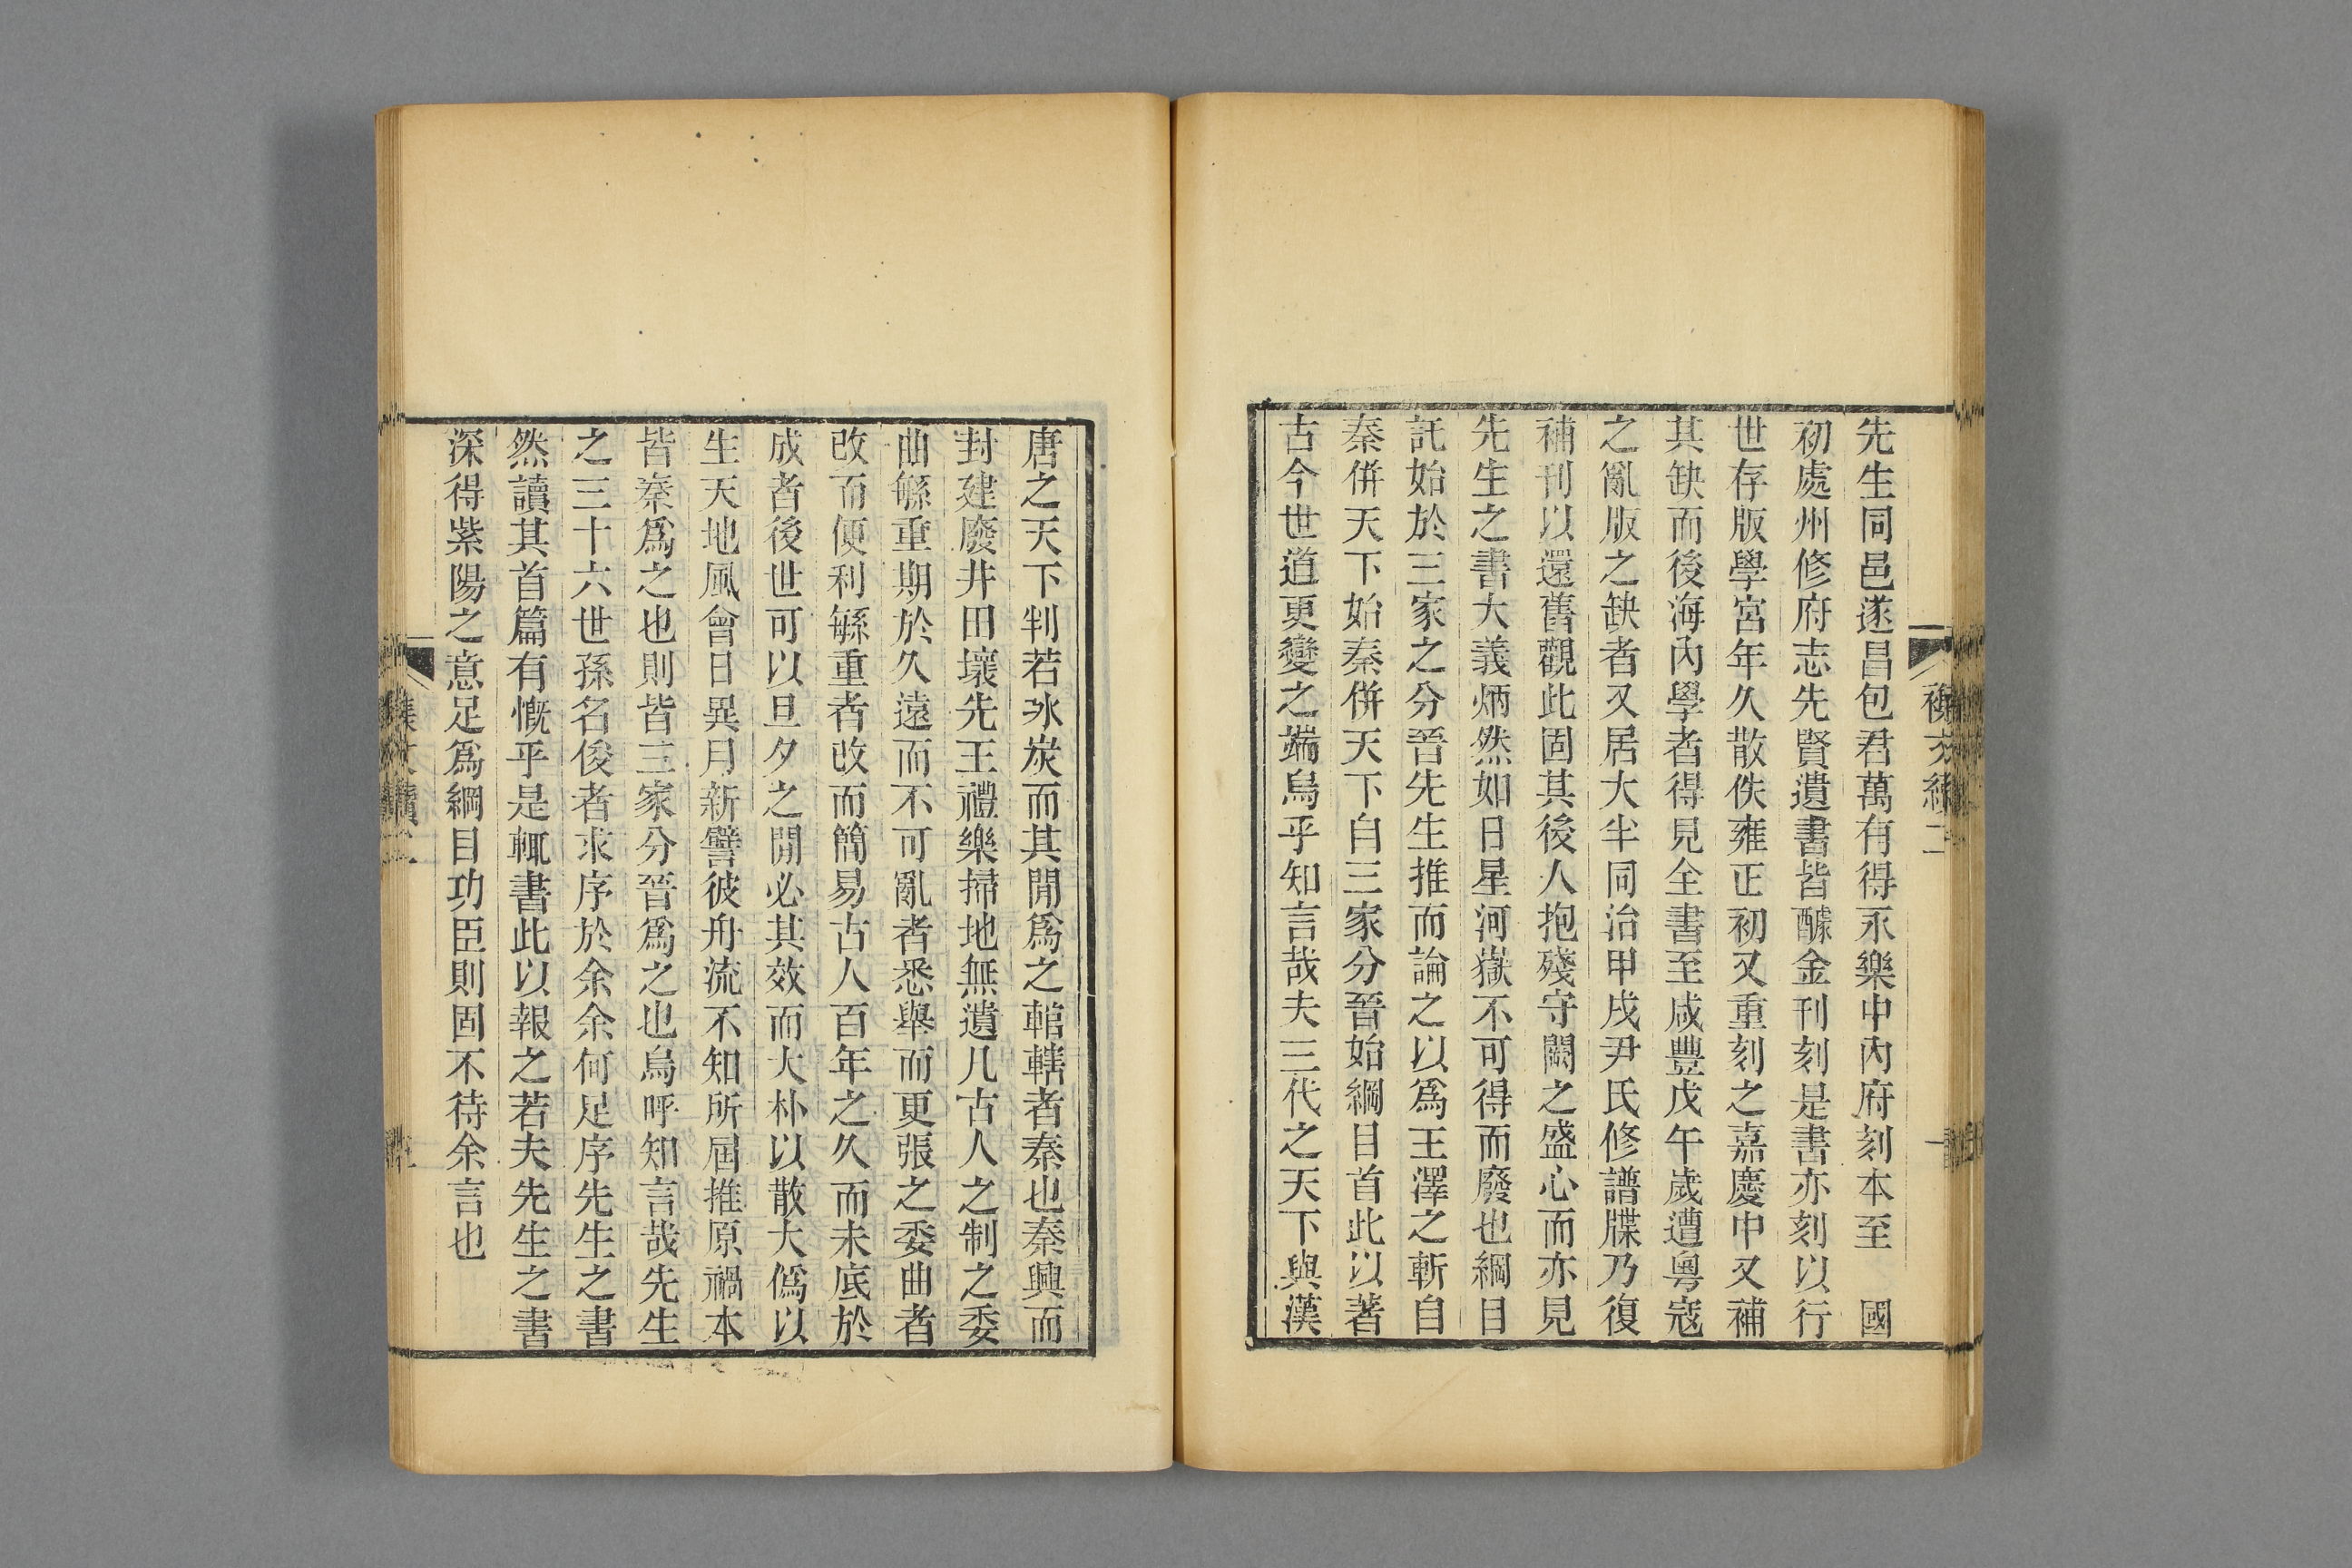 先生同邑遂昌包君萬有得永樂中內府刻本至　國
初處州修府志先賢遺書皆醵金刊刻是書亦刻以行
世存版學宮年久散佚雍正初又重刻之嘉慶中又補
其缺而後海內學者得見全書至咸豐戊午歲遭粵寇
之亂版之缺者又居大半同治甲戌尹氏修譜牒乃復
補刊以還舊觀此固其後人抱殘守闕之盛心而亦見
先生之書大義炳然如日星河嶽不可得而廢也綱目
託始於三家之分晉先生推而論之以為王澤之斬自
秦併天下始秦併天下自三家分晉始綱目首此以著
古今世道更變之端烏乎知言哉夫三代之天下與漢
唐之天下判若氷炭而其閒為之輨轄者秦也秦興而
封建廢井田壞先王禮樂掃地無遺凡古人之制之委
曲緐重期於久遠而不可亂者悉舉而更張之委曲者
改而便利緐重者改而簡易古人百年之久而未底於
成者後世可以旦夕之閒必其效而大朴以散大偽以
生天地風會日異月新譬彼舟流不知所屆推原禍本
皆秦為之也則皆三家分晉為之也烏呼知言哉先生
之三十六世孫名俊者求序於余余何足序先生之書
然讀其首篇有慨乎是輒書此以報之若夫先生之書
深得紫陽之意足為綱目功臣則固不待余言也